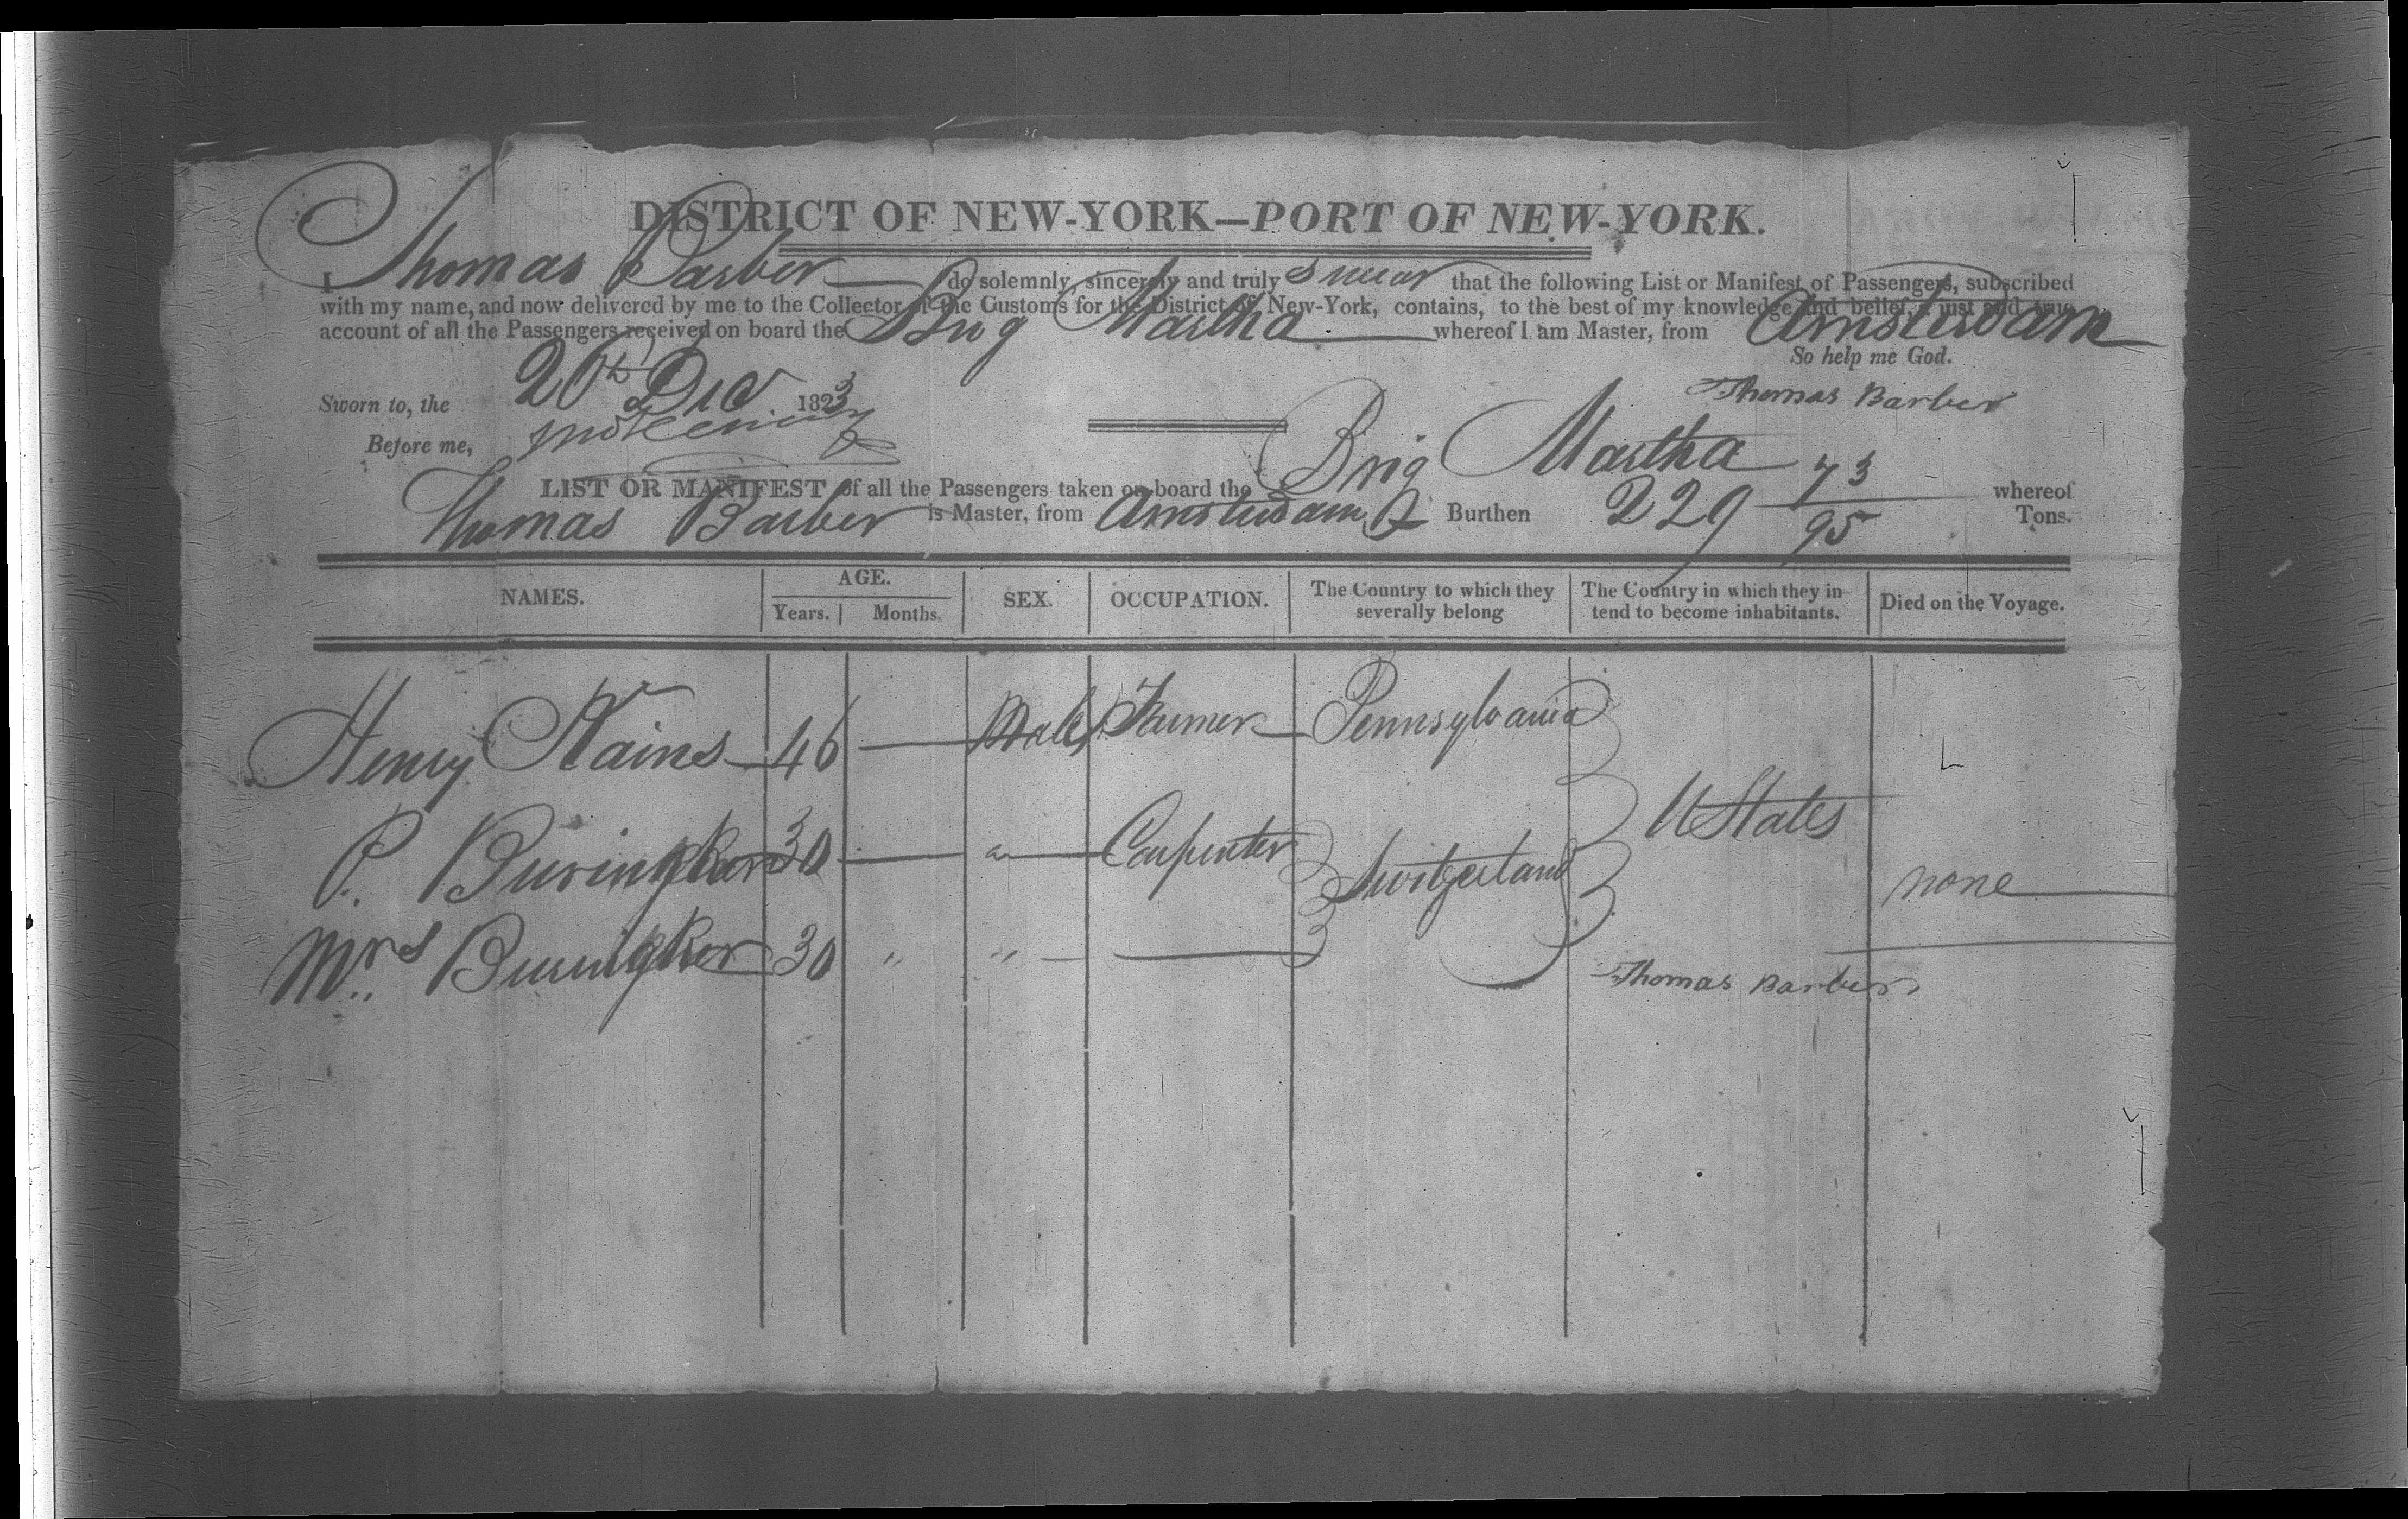 DISTRICT OF NEW-YORK—PORT OF NEW-YORK.
I Thomas Barber do solemnly, sincerely and truly swear that the following List or Manifest of Passengers, subscribed
with my name, and now delivered by me to the Collector of the Customs for the District of New-York, contains, to the best of my knowledge and belief, a just and true
account of all the Passengers received on board the Brig Martha whereof I am Master, from Amsterdam
So help me God.
Sworn to, the 20th Dec 1823 Thomas Barber
Before me,
LIST OR MANIFEST of all the Passengers taken on board the Brig Martha whereof
Thomas Barber is Master, from Amsterdam Burthen 229 73/95 Tons.
NAMES. AGE. Years. Months. SEX. OCCUPATION. The Country to which they severally belong The Country in which they intend to become inhabitants. Died on the Voyage.
Henry 46 — Male Farmer Pennsylvania
U States
P. 30 — " Carpenter Switzerland none
Mrs 30 " " —
Thomas Barber